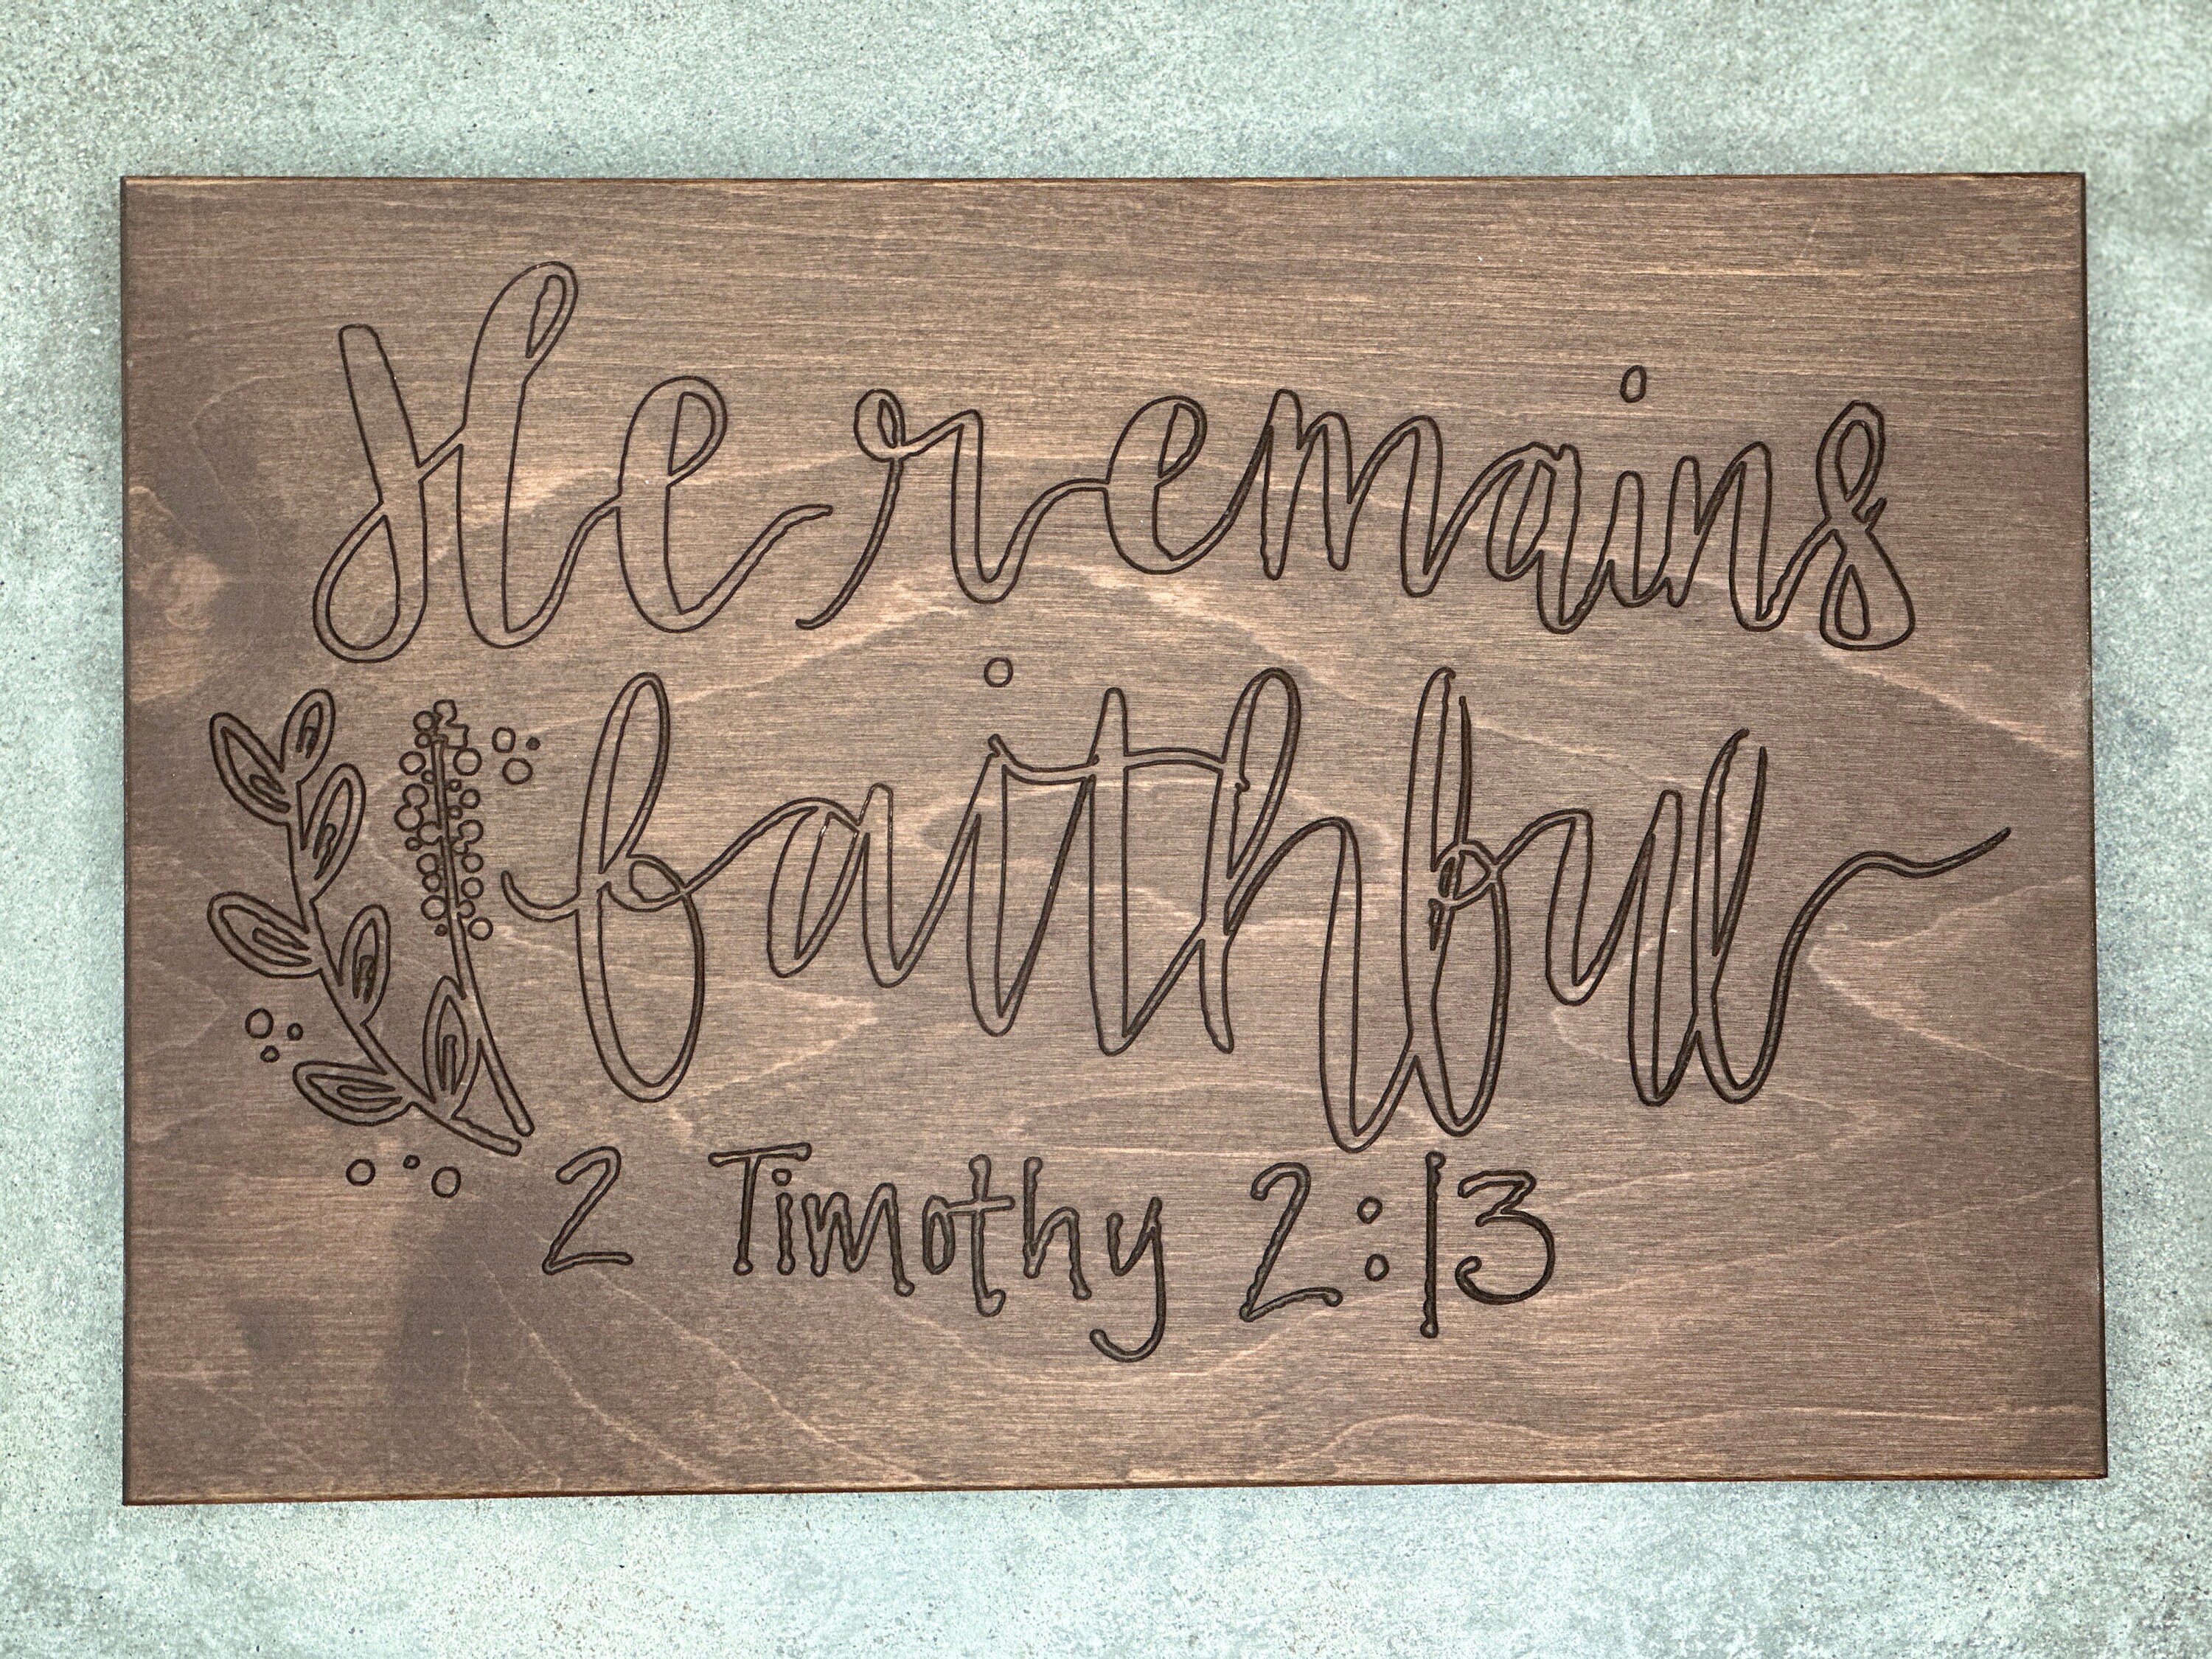 He remains
faithful
2 Timothy 2:13